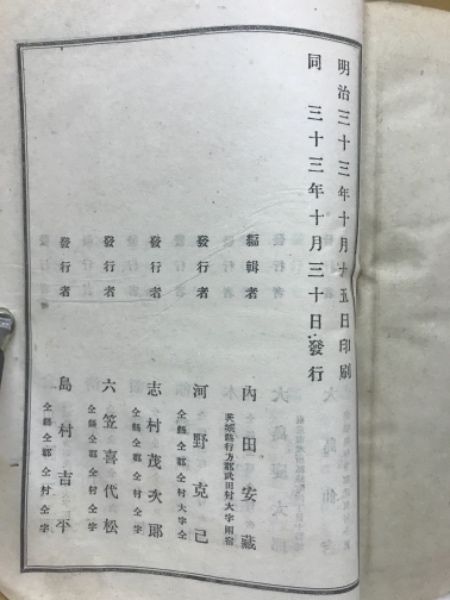 明治三十三年十月十五日印刷
同 三十三年十月三十日發行
編輯者 內田安藏
茨城縣行方郡武田村大字兩宿
發行者 河野克己
仝縣仝郡仝村大字仝
發行者 志村茂次郎
仝縣仝郡仝村仝字
發行者 六笠喜代松
仝縣仝郡仝村仝字
發行者 島村吉平
仝縣仝郡仝村仝字